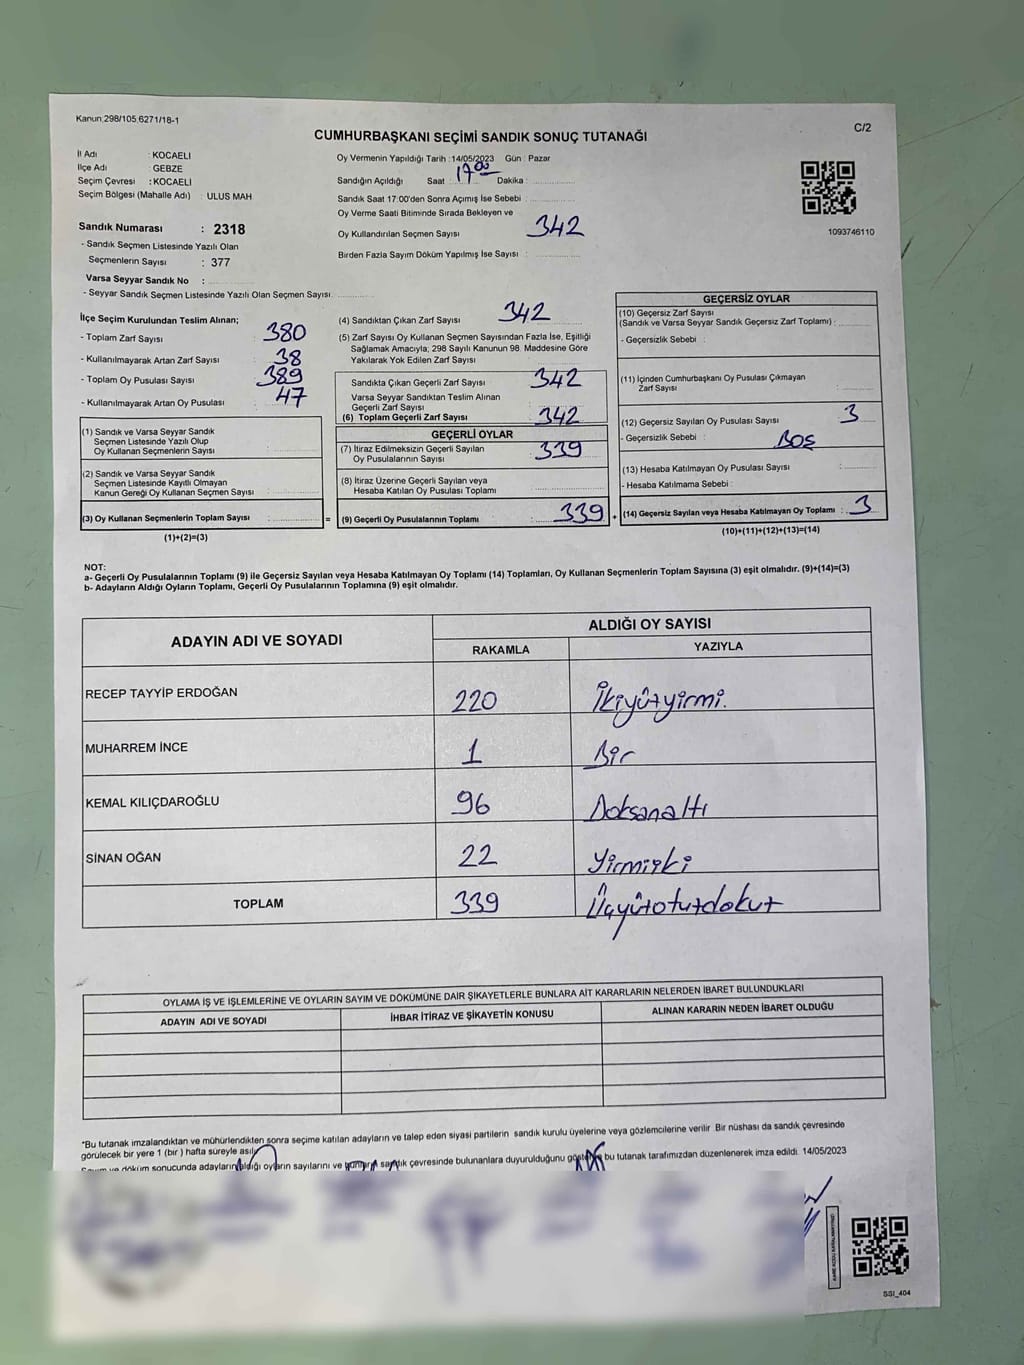 Kanun:298/105,6271/18-1
C/2
CUMHURBAŞKANI SEÇİMİ SANDIK SONUÇ TUTANAĞI
İl Adı : KOCAELİ
İlçe Adı : GEBZE
Seçim Çevresi : KOCAELİ
Seçim Bölgesi (Mahalle Adı) : ULUS MAH
Oy Vermenin Yapıldığı Tarih :14/05/2023 Gün : Pazar
Sandığın Açıldığı Saat : 17 00 Dakika :
Sandık Saat 17:00'den Sonra Açımış İse Sebebi :
Oy Verme Saati Bitiminde Sırada Bekleyen ve
Oy Kullandırılan Seçmen Sayısı 342
Birden Fazla Sayım Döküm Yapılmış İse Sayısı :
1093746110
Sandık Numarası : 2318
- Sandık Seçmen Listesinde Yazılı Olan
Seçmenlerin Sayısı : 377
Varsa Seyyar Sandık No :
- Seyyar Sandık Seçmen Listesinde Yazılı Olan Seçmen Sayısı:
İlçe Seçim Kurulundan Teslim Alınan;
- Toplam Zarf Sayısı 380
- Kullanılmayarak Artan Zarf Sayısı 38
- Toplam Oy Pusulası Sayısı 389
- Kullanılmayarak Artan Oy Pusulası 47
(1) Sandık ve Varsa Seyyar Sandık
Seçmen Listesinde Yazılı Olup
Oy Kullanan Seçmenlerin Sayısı :
(2) Sandık ve Varsa Seyyar Sandık
Seçmen Listesinde Kayıtlı Olmayan
Kanun Gereği Oy Kullanan Seçmen Sayısı :
(3) Oy Kullanan Seçmenlerin Toplam Sayısı : =
(1)+(2)=(3)
(4) Sandıktan Çıkan Zarf Sayısı 342
(5) Zarf Sayısı Oy Kullanan Seçmen Sayısından Fazla İse, Eşitliği
Sağlamak Amacıyla, 298 Sayılı Kanunun 98. Maddesine Göre
Yakılarak Yok Edilen Zarf Sayısı
Sandıkta Çıkan Geçerli Zarf Sayısı 342
Varsa Seyyar Sandıktan Teslim Alınan
Geçerli Zarf Sayısı
(6) Toplam Geçerli Zarf Sayısı 342
GEÇERLİ OYLAR
(7) İtiraz Edilmeksizin Geçerli Sayılan
Oy Pusulalarının Sayısı 339
(8) İtiraz Üzerine Geçerli Sayılan veya
Hesaba Katılan Oy Pusulası Toplamı
(9) Geçerli Oy Pusulalarının Toplamı : 339 +
GEÇERSİZ OYLAR
(10) Geçersiz Zarf Sayısı
(Sandık ve Varsa Seyyar Sandık Geçersiz Zarf Toplamı) :
- Geçersizlik Sebebi :
(11) İçinden Cumhurbaşkanı Oy Pusulası Çıkmayan
Zarf Sayısı
(12) Geçersiz Sayılan Oy Pusulası Sayısı 3
- Geçersizlik Sebebi : Boş
(13) Hesaba Katılmayan Oy Pusulası Sayısı :
- Hesaba Katılmama Sebebi :
(14) Geçersiz Sayılan veya Hesaba Katılmayan Oy Toplamı : 3
(10)+(11)+(12)+(13)=(14)
NOT:
a- Geçerli Oy Pusulalarının Toplamı (9) ile Geçersiz Sayılan veya Hesaba Katılmayan Oy Toplamı (14) Toplamları, Oy Kullanan Seçmenlerin Toplam Sayısına (3) eşit olmalıdır. (9)+(14)=(3)
b- Adayların Aldığı Oyların Toplamı, Geçerli Oy Pusulalarının Toplamına (9) eşit olmalıdır.
ADAYIN ADI VE SOYADI
ALDIĞI OY SAYISI
RAKAMLA YAZIYLA
RECEP TAYYİP ERDOĞAN 220 İkiyüzyirmi.
MUHARREM İNCE 1 Bir
KEMAL KILIÇDAROĞLU 96 Doksanaltı
SİNAN OĞAN 22 Yirmiiki
TOPLAM 339 Üçyüzotuzdokuz
OYLAMA İŞ VE İŞLEMLERİNE VE OYLARIN SAYIM VE DÖKÜMÜNE DAİR ŞİKAYETLERLE BUNLARA AİT KARARLARIN NELERDEN İBARET BULUNDUKLARI
ADAYIN ADI VE SOYADI İHBAR İTİRAZ VE ŞİKAYETİN KONUSU ALINAN KARARIN NEDEN İBARET OLDUĞU
*Bu tutanak imzalandıktan ve mühürlendikten sonra seçime katılan adayların ve talep eden siyasi partilerin sandık kurulu üyelerine veya gözlemcilerine verilir. Bir nüshası da sandık çevresinde
görülecek bir yere 1 (bir ) hafta süreyle asılır.
Sayım ve döküm sonucunda adayların aldığı oyların sayılarını ve bunların sandık çevresinde bulunanlara duyurulduğunu gösteren bu tutanak tarafımızdan düzenlenerek imza edildi. 14/05/2023
SSI_404